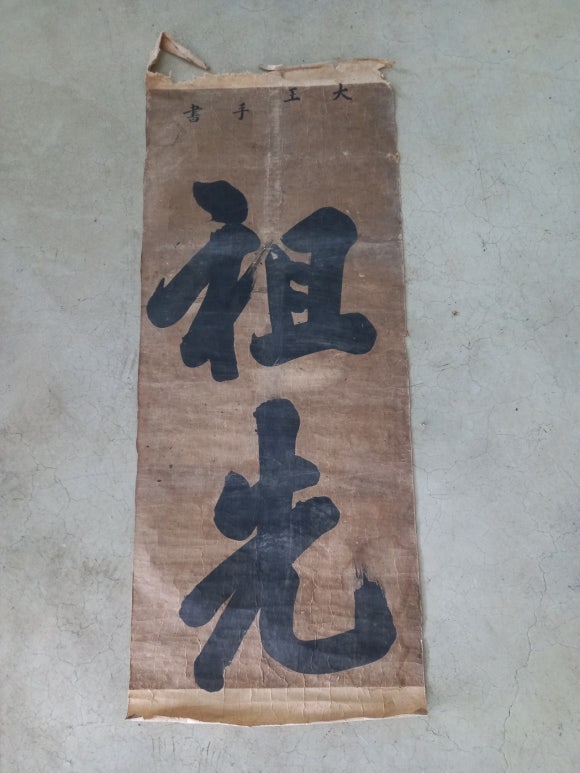 大王手書
祖先